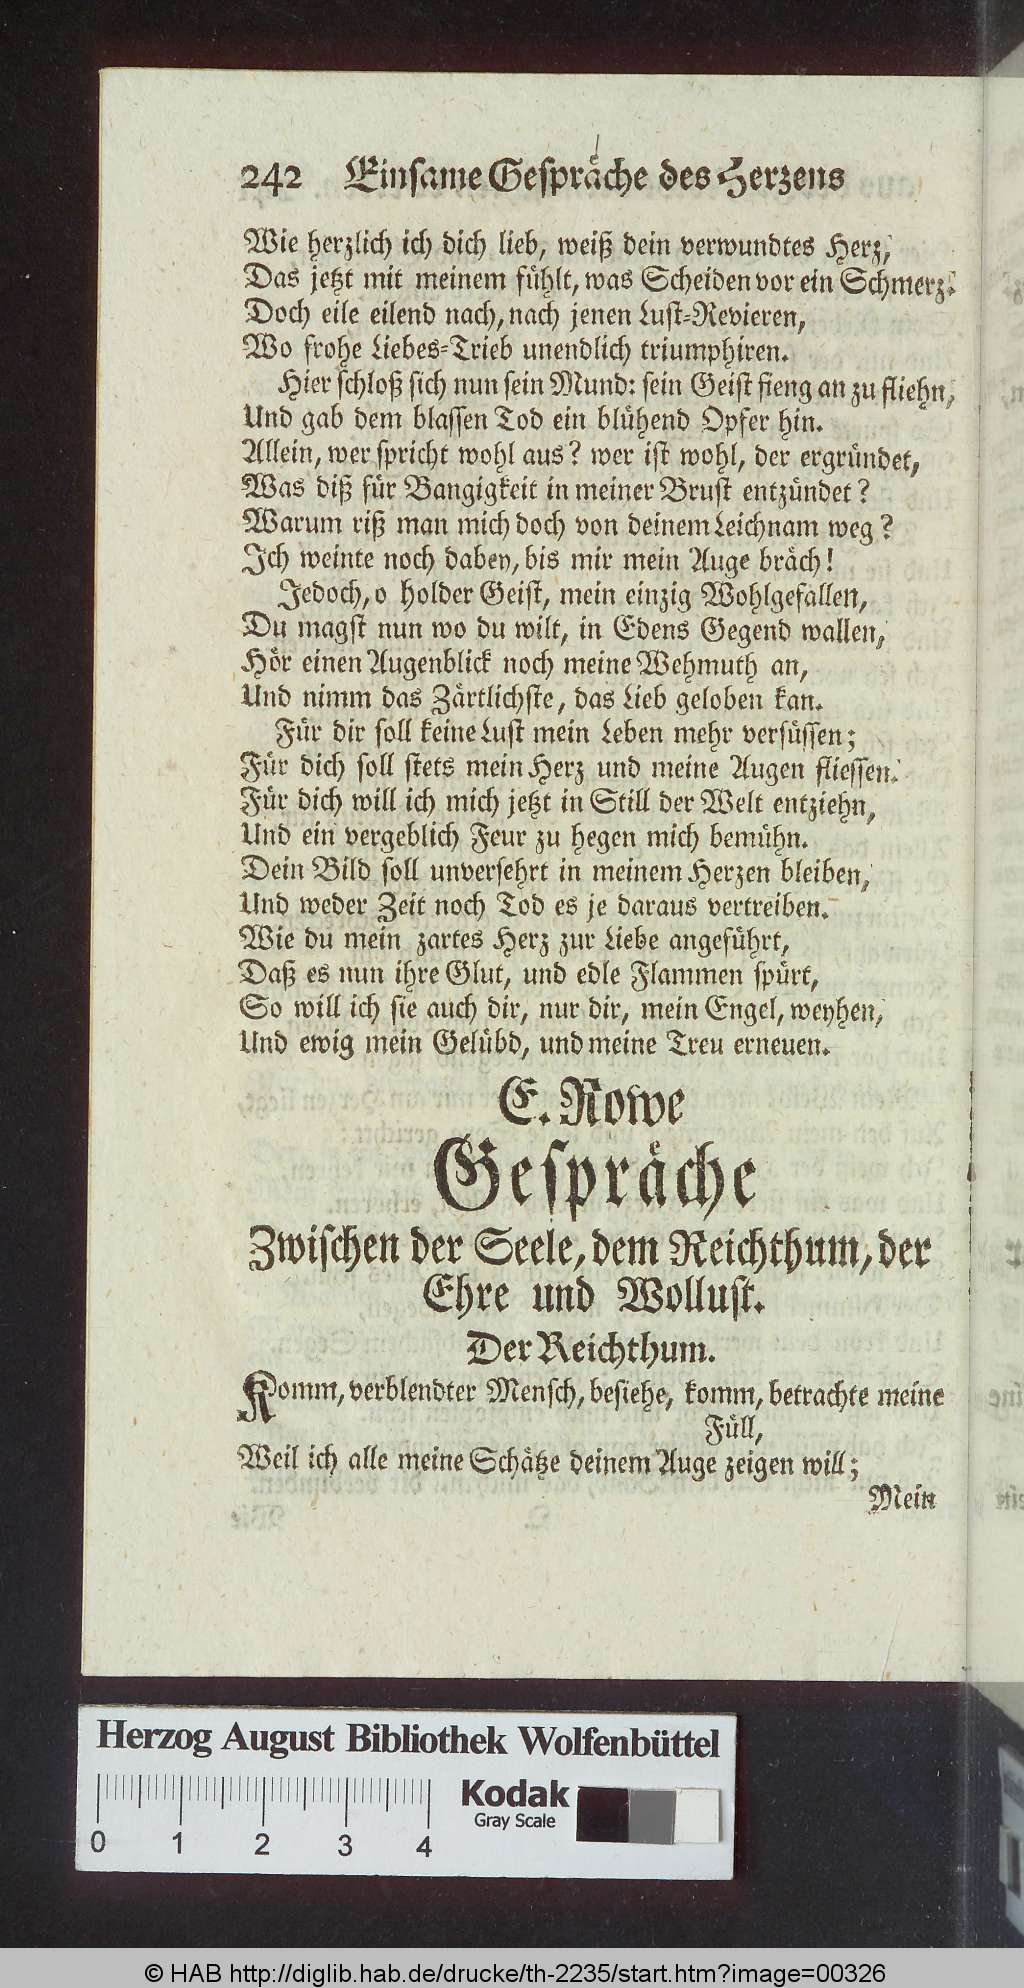 242 Einsame Gespräche des Herzens
Wie herzlich ich dich lieb, weiß dein verwundtes Herz,
Das jetzt mit meinem fühlt, was Scheiden vor ein Schmerz.
Doch eile eilend nach, nach jenen Lust-Revieren,
Wo frohe Liebes-Trieb unendlich triumphiren.
Hier schloß sich nun sein Mund: sein Geist fieng an zu fliehn,
Und gab dem blassen Tod ein blühend Opfer hin.
Allein, wer spricht wohl aus? wer ist wohl, der ergründet,
Was diß für Bangigkeit in meiner Brust entzündet?
Warum riß man mich doch von deinem Leichnam weg?
Ich weinte noch dabey, bis mir mein Auge bräch!
Jedoch, o holder Geist, mein einzig Wohlgefallen,
Du magst nun wo du wilt, in Edens Gegend wallen,
Hör einen Augenblick noch meine Wehmuth an,
Und nimm das Zärtlichste, das Lieb geloben kan.
Für dir soll keine Lust mein Leben mehr versüssen;
Für dich soll stets mein Herz und meine Augen fliessen.
Für dich will ich mich jetzt in Still der Welt entziehn,
Und ein vergeblich Feur zu hegen mich bemühn.
Dein Bild soll unversehrt in meinem Herzen bleiben,
Und weder Zeit noch Tod es je daraus vertreiben.
Wie du mein zartes Herz zur Liebe angeführt,
Daß es nun ihre Glut, und edle Flammen spürt,
So will ich sie auch dir, nur dir, mein Engel, weyhen,
Und ewig mein Gelübd, und meine Treu erneuen.
E. Rowe
Gespräche
Zwischen der Seele, dem Reichthum, der
Ehre und Wollust.
Der Reichthum.
Komm, verblendter Mensch, besiehe, komm, betrachte meine
Füll,
Weil ich alle meine Schätze deinem Auge zeigen will;
Mein
Herzog August Bibliothek Wolfenbüttel
Kodak
Gray Scale
0 1 2 3 4
© HAB http://diglib.hab.de/drucke/th-2235/start.htm?image=00326